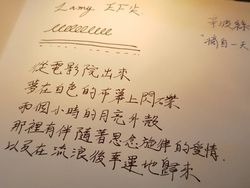 Lamy EF尖
從電影院出來
夢在白色的平幕上閃耀
兩個小時的月亮外殼
那裡有伴隨着思念旋律的愛情
以及在流浪後幸運地歸來
摘自一天